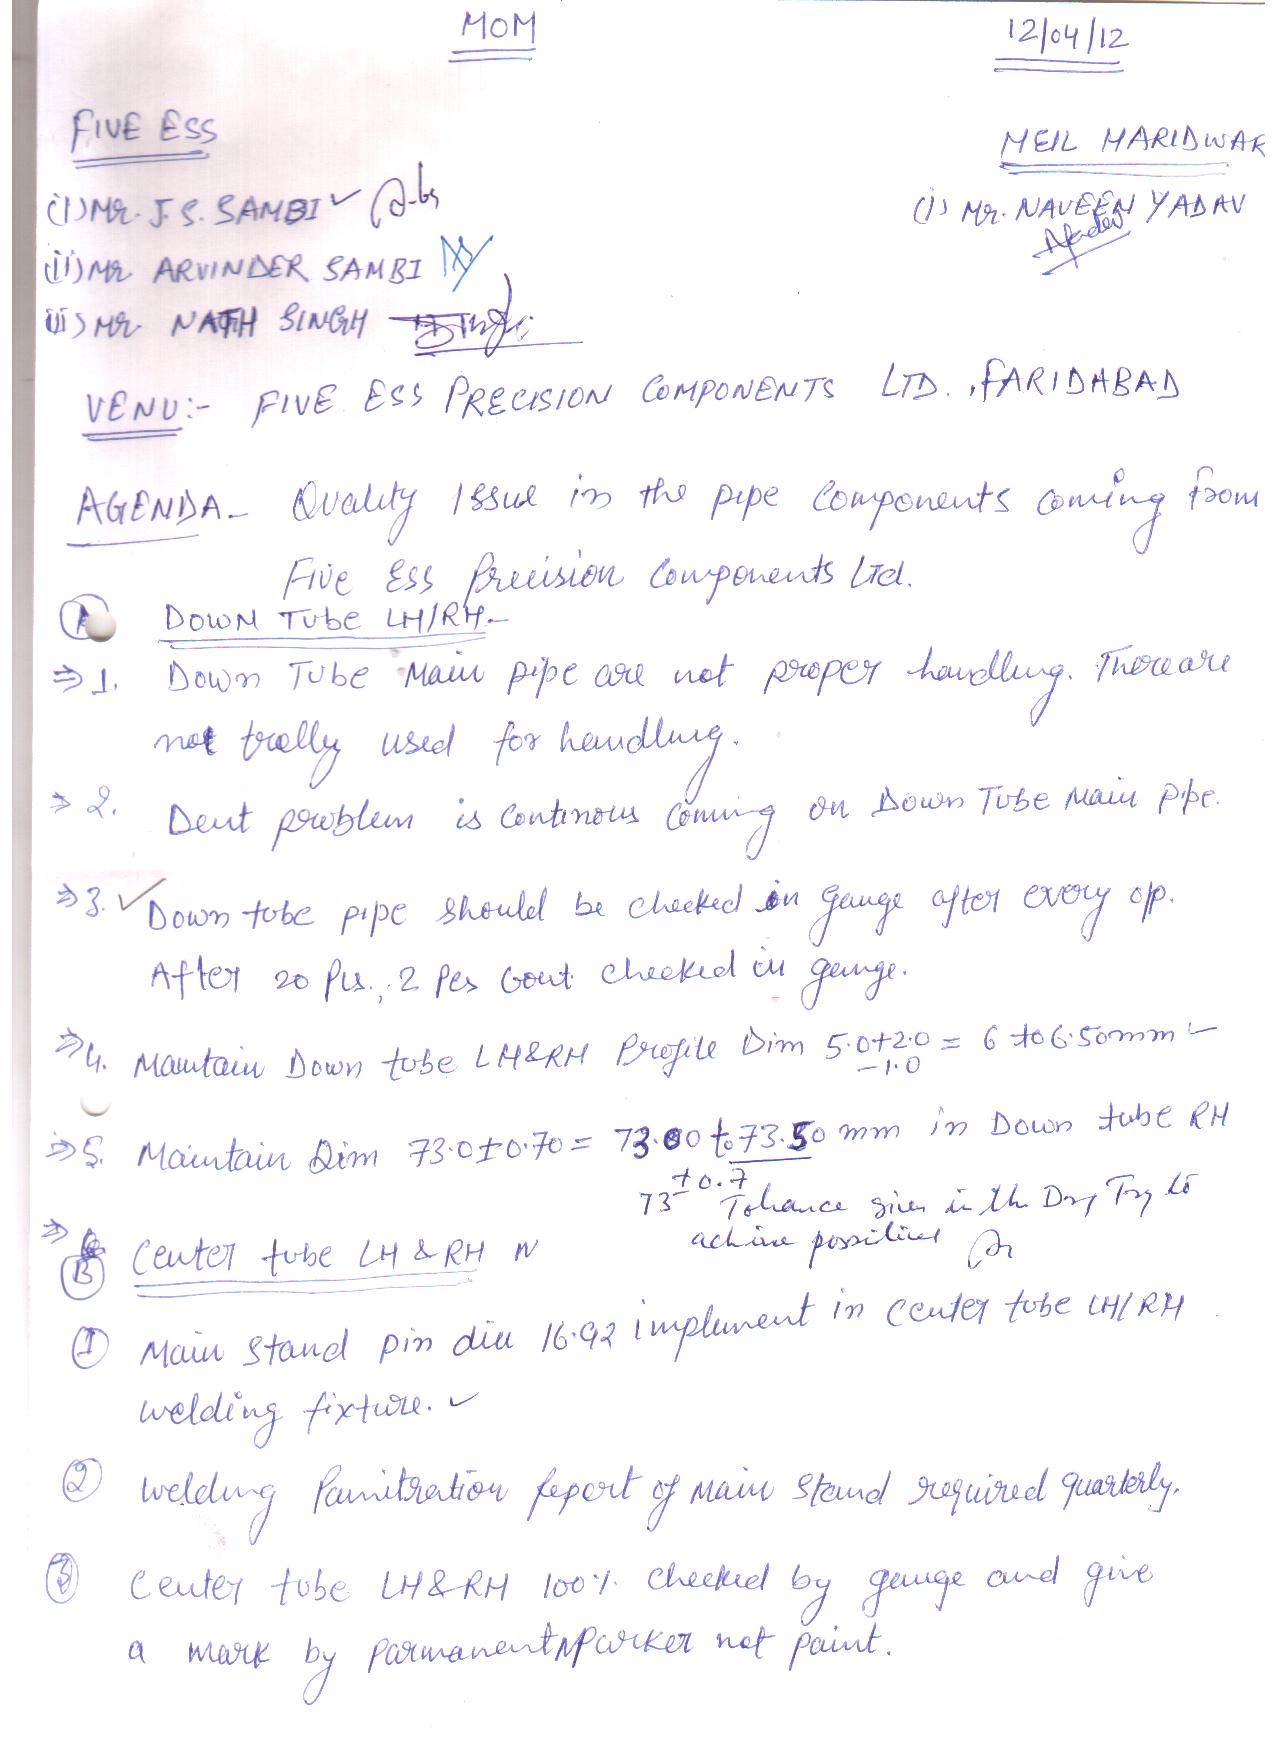 MOM
12/04/12
FIVE ESS
MEIL HARIDWAR
(i) Mr. J.S. SAMBI ✓
(i) Mr. NAVEEN YADAV
(ii) Mr ARVINDER SAMBI
(iii) Mr. NATH SINGH
VENU:- FIVE ESS PRECISION COMPONENTS LTD., FARIDABAD
AGENDA - Quality Issue in the pipe Components coming from
Five Ess Precision Components Ltd.
A DOWN TUBE LH/RH -
⇒ 1. Down Tube Main pipe are not proper handling. There are
not trolly used for handling.
⇒ 2. Dent problem is continous coming on Down Tube Main pipe.
⇒ 3. ✓ Down tube pipe should be checked in gauge after every op.
After 20 Pcs., 2 Pcs checked in gauge.
⇒ 4. Maintain Down tube LH&RH Profile Dim 5.0+2.0 = 6 to 6.50mm
-1.0
⇒ 5. Maintain Dim 73.0±0.70 = 73.00 to 73.50 mm in Down tube RH
73±0.7 Tolerance given in the Drg Try to
achive
⇒ B Center tube LH & RH
① Main Stand pin dia 16.92 implement in Center tube LH/RH
welding fixture. ✓
② Welding Panitration Report of Main Stand required quarterly.
③ Center tube LH&RH 100% checked by gauge and give
a mark by Parmanent Marker not paint.